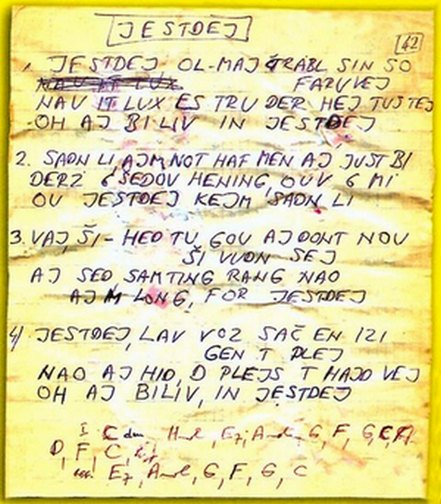 JESTDEJ
42
1. JESTDEJ OL-MAJ TRABL SIN SO
FARUVEJ
NAU IT LUX ES TRU DER HEJ TUSTEJ
OH AJ BILIV IN JESTDEJ
2. SADN LI, AJM NOT HAF MEN AJ JUST BI
DERZ E ŠEDOV HENING, OUV 6 MI
OU JESTDEJ KEJM SADN LI
3. VAJ, ŠI - HED TU, GOU AJ DONT NOU
ŠI VUDN SEJ
AJ SED SAMTING RANG NAO
AJ M LONG, FOR JESTDEJ
4/ JESTDEJ, LAV VOZ SAČ EN IZI
GEN T PLEJ
NAO AJ HID, D PLEJS T HAJD VEJ
OH AJ BILIV, IN JESTDEJ
E7, G, F, G, C
D, F, C,
E7, Amol, G, F, G, C